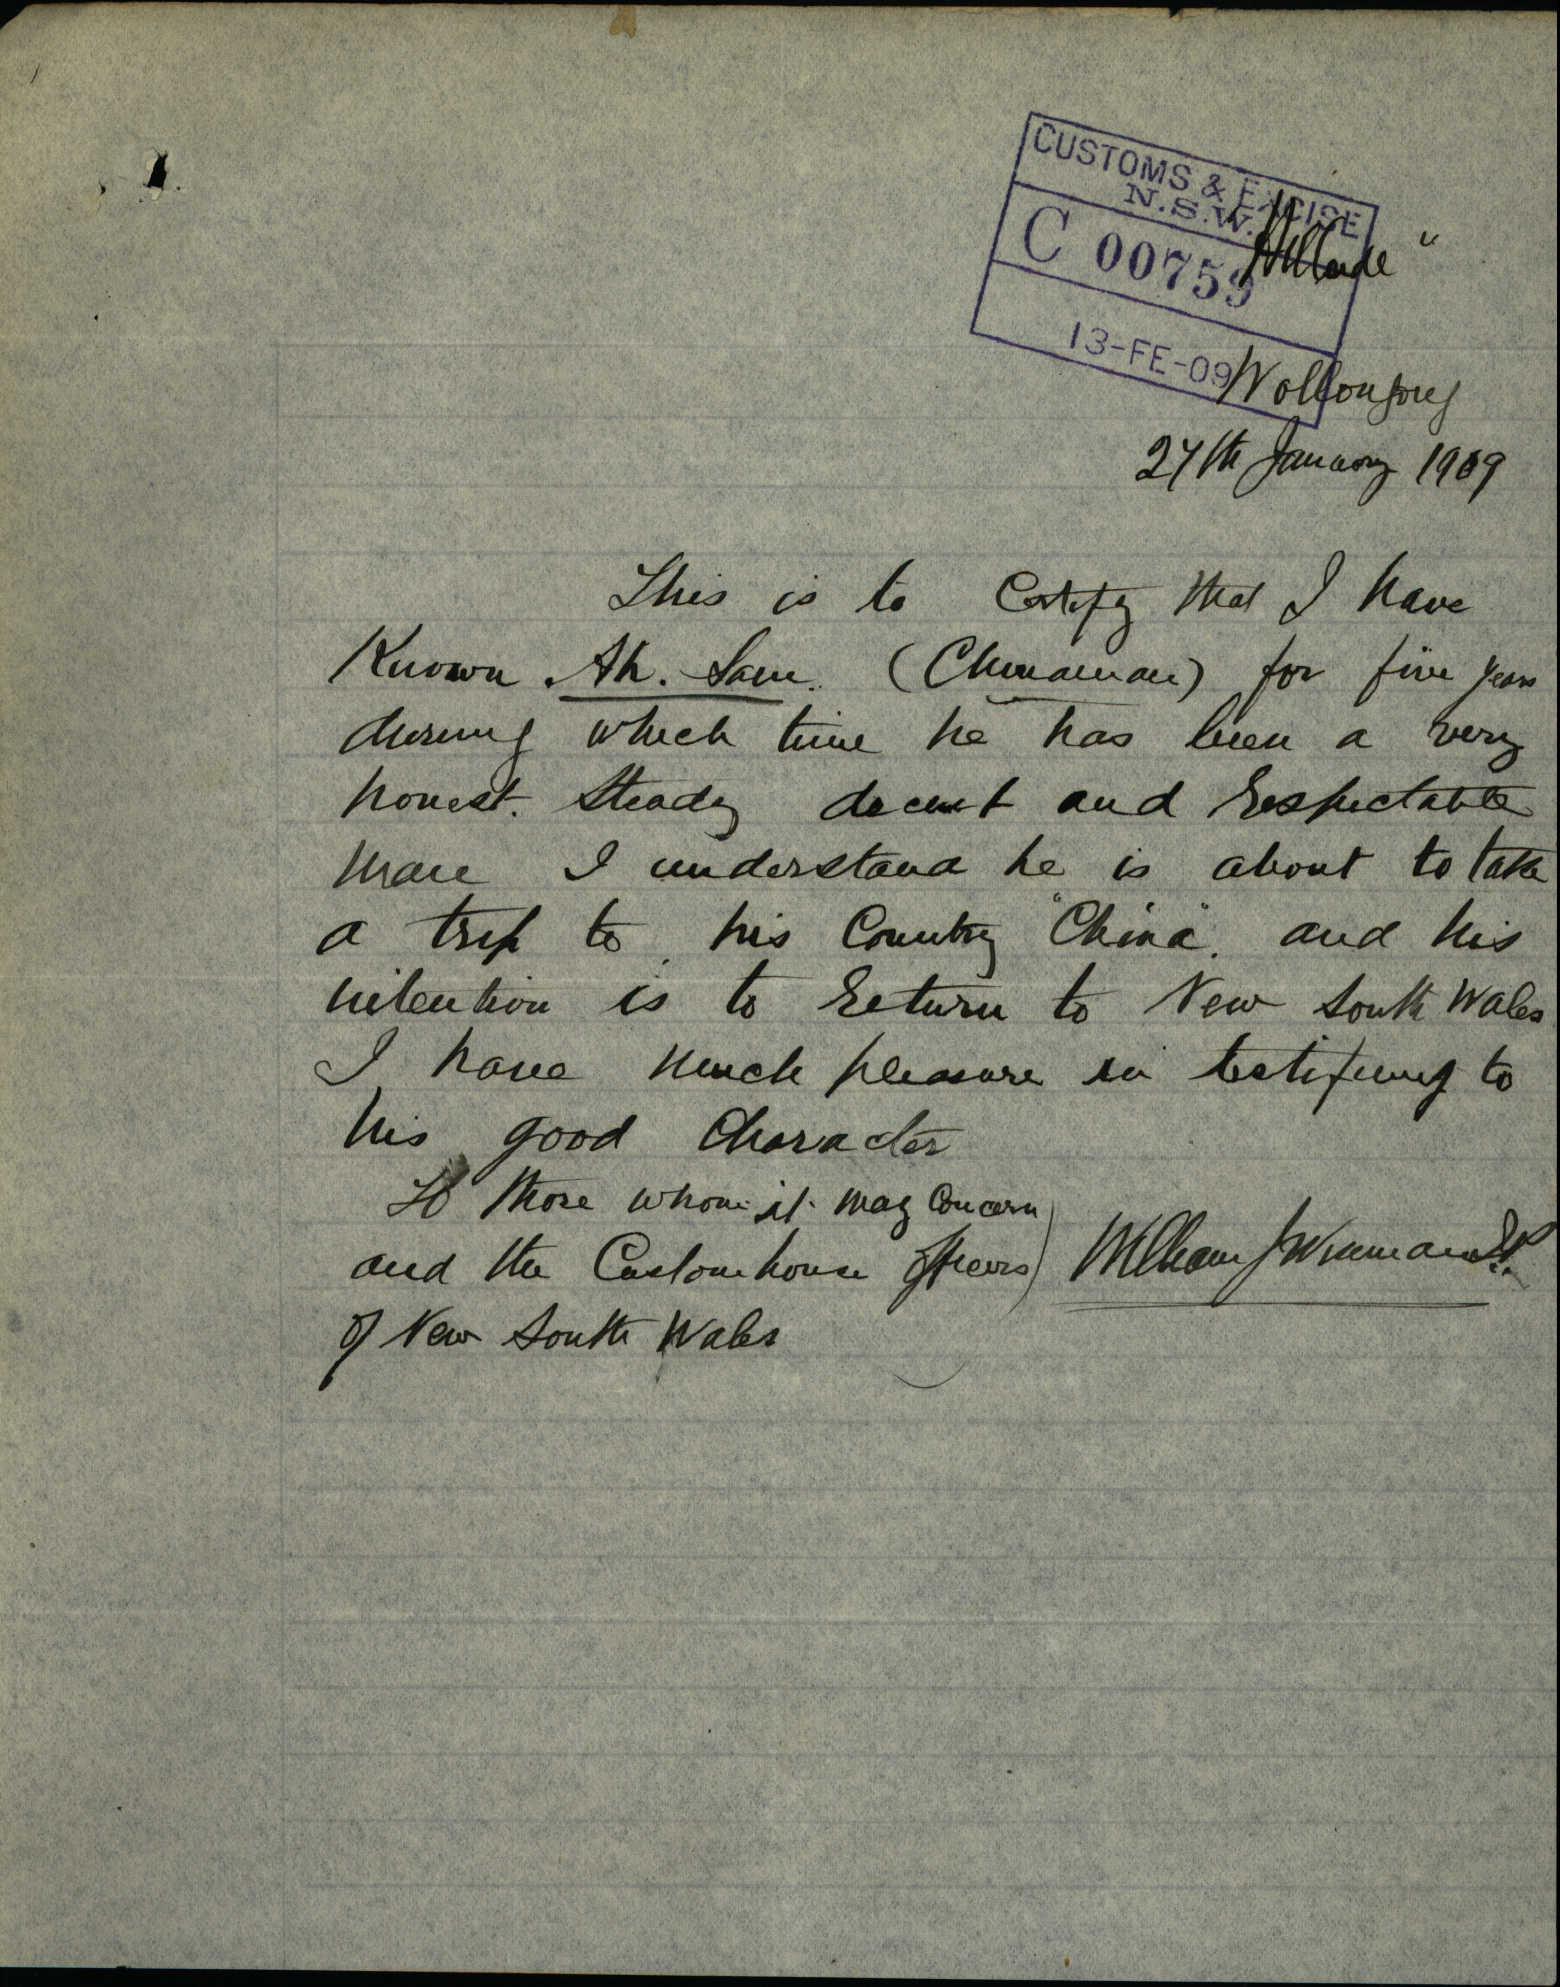 CUSTOMS & EXCISE
N.S.W.
C 00759
13-FE-09
Wollongong
27th January 1909
This is to Certify that I have
Known Ah. Sam. (Chinaman) for five years
during which time he has been a very
honest. Steady decent and respectable
man I understand he is about to take
a trip to his Country "China". and his
intention is to return to New South Wales
I have much pleasure in testifying to
his good Character
To those whom it may Concern
and the Customhouse officers
of New South Wales
William J